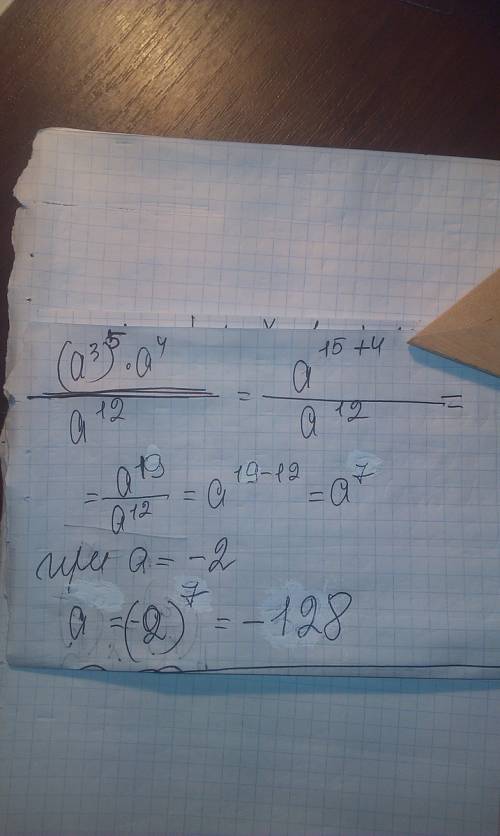 (a³)⁵·a⁴ / a¹² = a¹⁵⁺⁴ / a¹² =
= a¹⁹ / a¹² = a¹⁹⁻¹² = a⁷
при a = -2
a = (-2)⁷ = -128